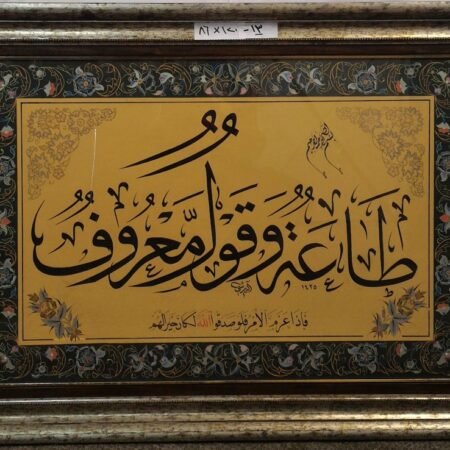 بسم الله الرحمن الرحيم
طَاعَةٌ وَقَوْلٌ مَّعْرُوفٌ
١٤٢٥
فاذا عزم الأمر فلو صدقوا الله لكان خيرا لهم